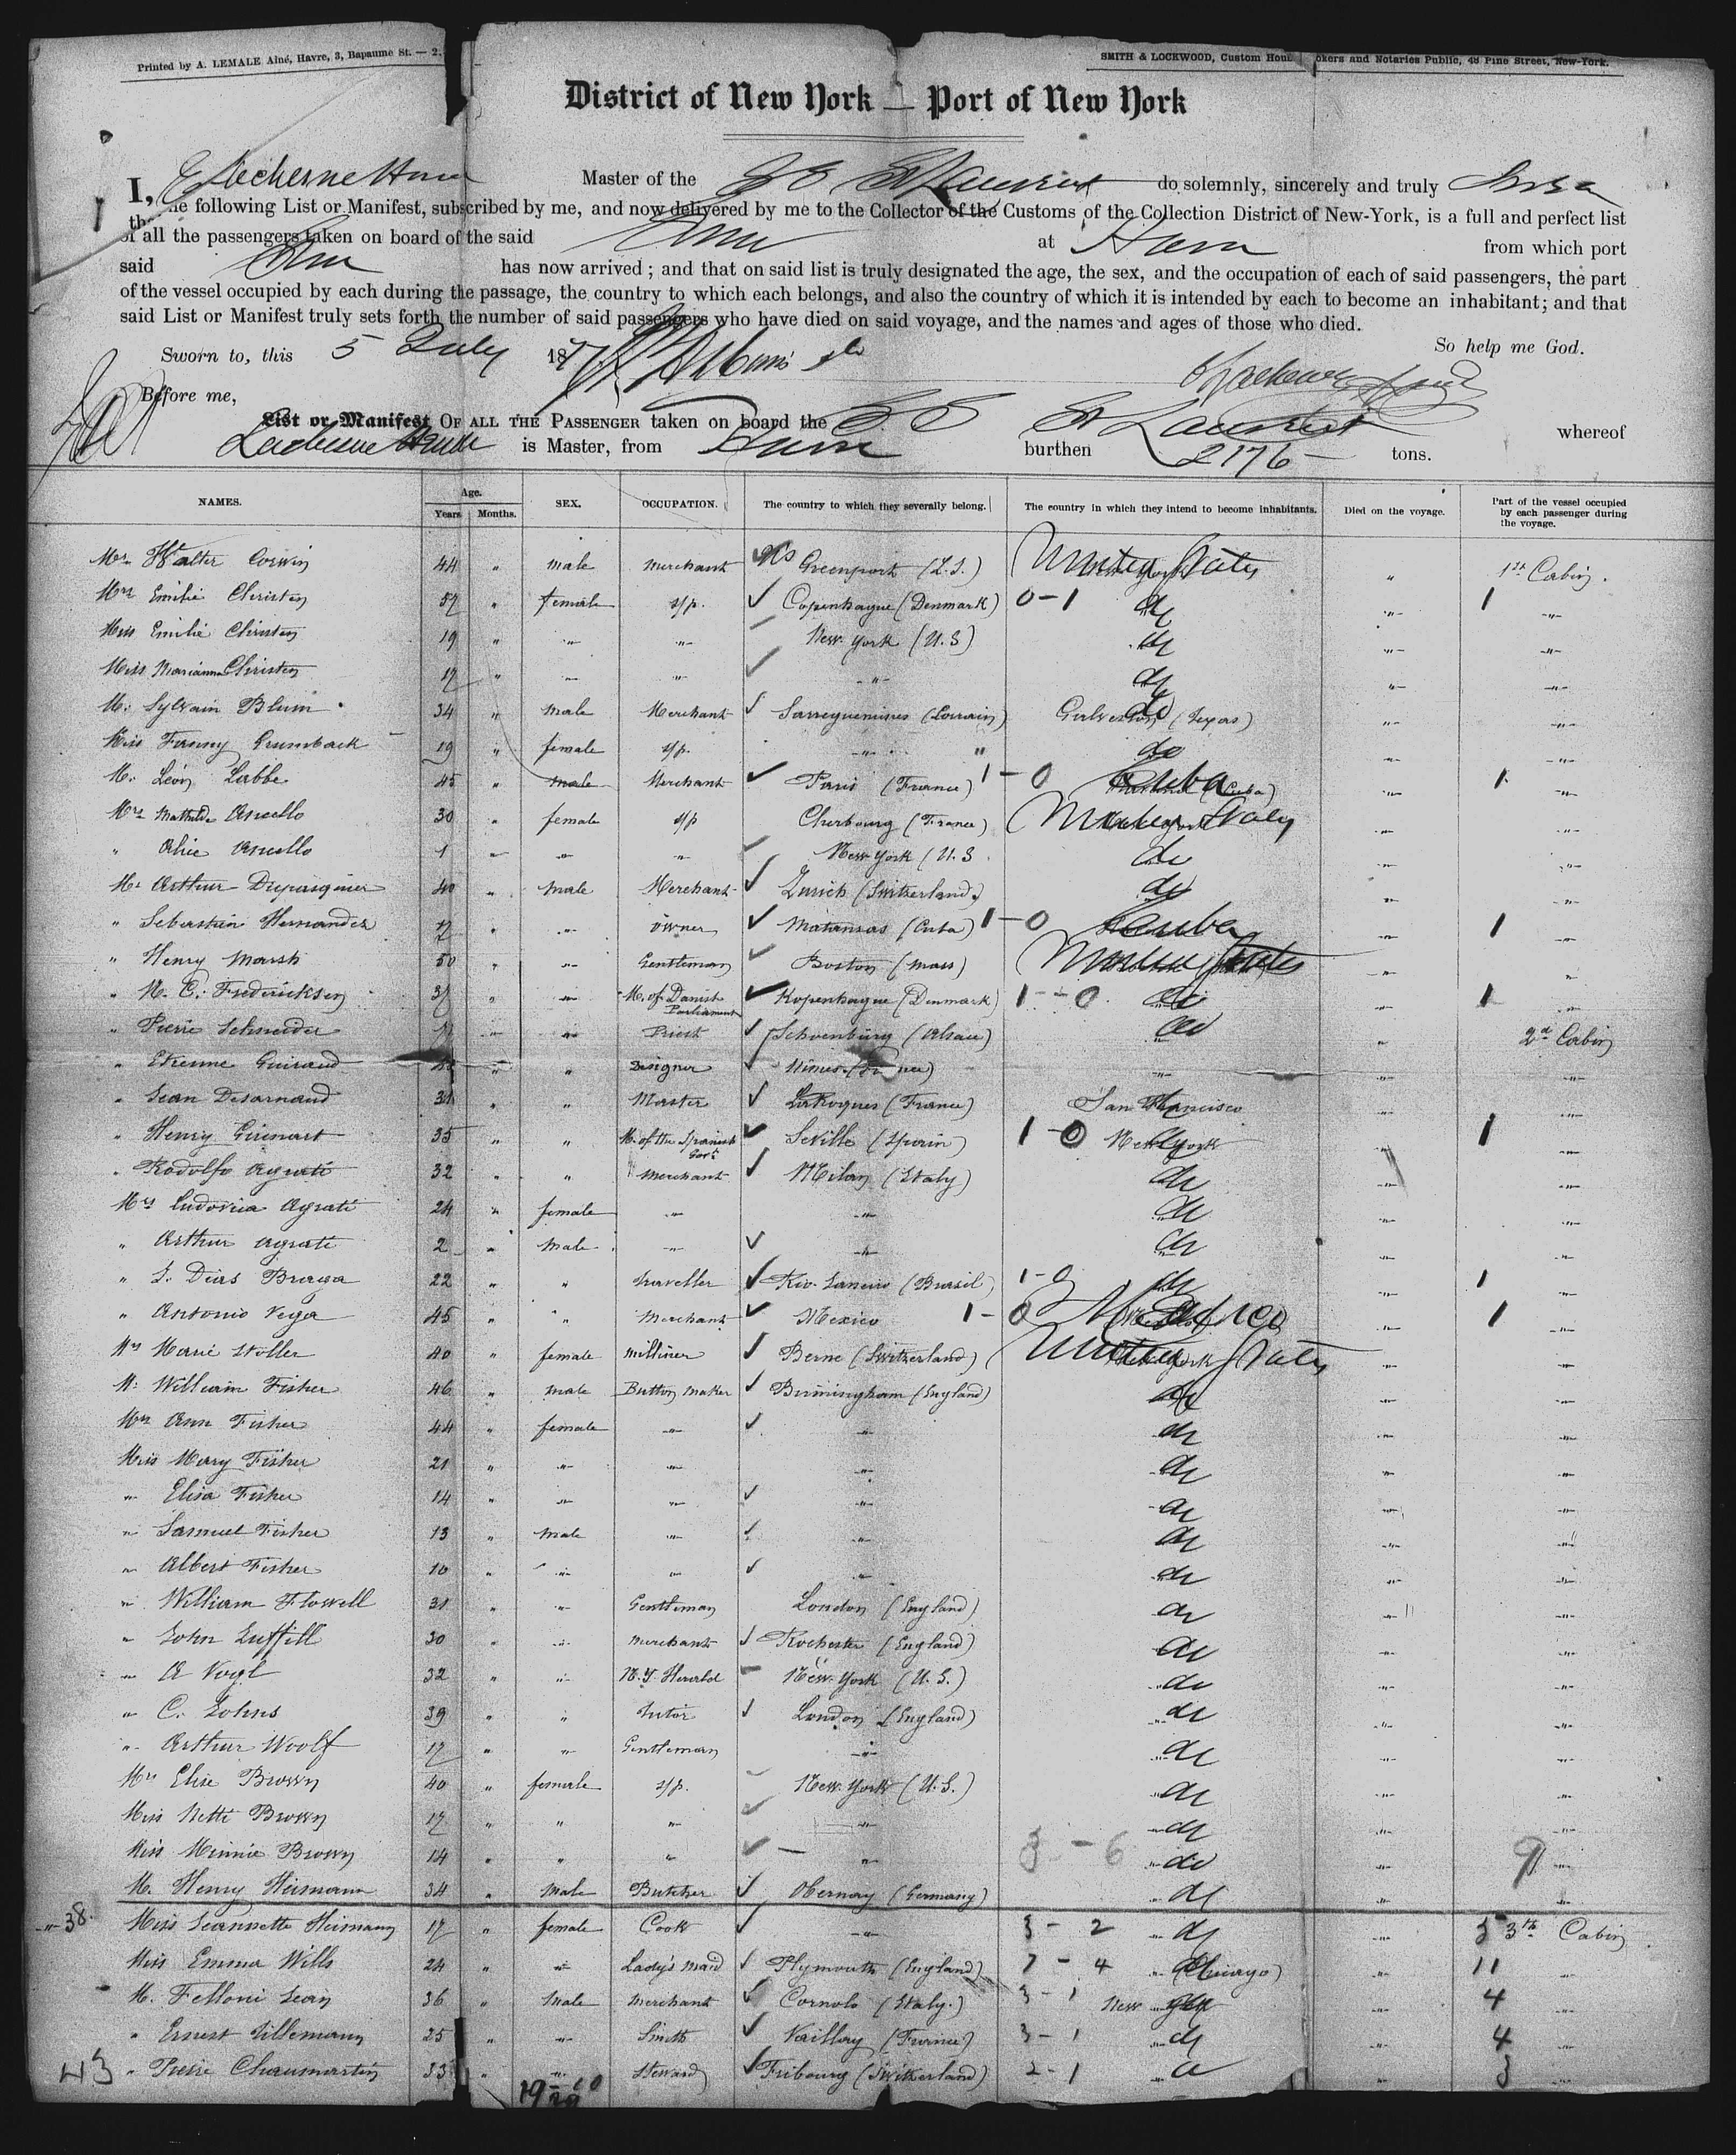 Printed by A. LEMALE Aîné, Havre, 3, Bapaume St. — 2.
SMITH & LOCKWOOD, Custom Hou okers and Notaries Public, 48 Pine Street, New-York.
District of New York — Port of New York
I, Master of the SS St Laurent do solemnly, sincerely and truly
the following List or Manifest, subscribed by me, and now delivered by me to the Collector of the Customs of the Collection District of New-York, is a full and perfect list
of all the passengers taken on board of the said at from which port
said has now arrived ; and that on said list is truly designated the age, the sex, and the occupation of each of said passengers, the part
of the vessel occupied by each during the passage, the country to which each belongs, and also the country of which it is intended by each to become an inhabitant; and that
said List or Manifest truly sets forth the number of said passengers who have died on said voyage, and the names and ages of those who died.
Sworn to, this 5 July 187 So help me God.
Before me,
List or Manifest OF ALL THE PASSENGER taken on board the SS St Laurent whereof
is Master, from burthen 2176 tons.
NAMES. Age. SEX. OCCUPATION. The country to which they severally belong. The country in which they intend to become inhabitants. Died on the voyage. Part of the vessel occupied by each passenger during the voyage.
Years Months.
Mr. Walter Corwin 44 " male Merchant Greenport (L.I.) United States " 1st Cabin.
Mrs Emilie Christen 57 " female s/p. Copenhague (Denmark) 0-1 do " 1 "
Miss Emilie Christen 19 " " " New York (U.S) do " "
Miss Marianna Christen 17 " " " " do " "
M. Sylvain Blum 34 " male Merchant Sarreguemines (Lorrain) Galveston (Texas) do " "
Miss Fanny Grumback 19 " female s/p. " " do " "
M. Léon Labbe 45 " male Merchant Paris (France) 1-0 Cuba " 1 "
Mrs Mathilde Ancello 30 " female s/p Cherbourg (France) United States " "
" Alice Ancello 1 " " " New York (U.S. do " "
Mr Arthur Dupasquier 40 " male Merchant Zurich (Switzerland) do " "
" Sebastian Hernandez " " owner Matansas (Cuba) 1-0 Cuba " 1 "
" Henry Marsh 50 " " Gentleman Boston (Mass) United States " "
" N. C. Fredericksen 37 " " M. of Danish Parliament Kopenhague (Denmark) 1-0 do " 1 "
" Pierre Schneider " " Priest Schoenburg (Alsace) do " 2d Cabin
" Etienne Guiraud " " Designer Nimes (France) " " "
" Jean Desarnaud 31 " " Master Laroques (France) San Francisco " "
" Henry Guenart 35 " " M. of the Spanish Gort Seville (Spain) 1-0 New York " 1 "
" Rodolfo Agrati 32 " " Merchant Milan (Italy) do " "
Mrs Ludovica Agrati 24 " female " " do " "
" Arthur Agrati 2 " Male " " do " "
" J. Dias Braga 22 " " traveller Rio Janeiro (Brasil) 1-0 do " 1 "
" Antonio Vega 45 " " Merchant Mexico 1-0 Mexico " 1 "
Mrs Marie Stoller 40 " female milliner Berne (Switzerland) United States " "
M. William Fisher 46 " male Button maker Birmingham (England) do " "
Mrs Ann Fisher 44 " female " " do " "
Miss Mary Fisher 21 " " " " do " "
" Elisa Fisher 14 " " " " do " "
" Samuel Fisher 13 " Male " " do " "
" Albert Fisher 10 " " " " do " "
" William Flowell 31 " " Gentleman London (England) do " "
" John Luffill 30 " " merchant Rochester (England) do " "
" A Vogl 32 " " N.Y. Herald New York (U.S.) do " "
" C. Johns 39 " " tutor London (England) do " "
" Arthur Woolf 17 " " Gentleman " do " "
Mrs Elise Brown 40 " female s/p. New York (U.S.) do " "
Miss Nette Brown 17 " " " " do " "
Miss Minnie Brown 14 " " " " 3-6 do " 9 "
M. Henry Heimann 34 " Male Butcher Obernay (Germany) do " "
38. Miss Jeannette Heimann 17 " female Cook " 3-2 do " 3 3th Cabin
Miss Emma Wills 24 " " Lady's maid Plymouth (England) 7-4 (Chicago) " 11 "
M. Felloni Jean 36 " Male Merchant Cornolo (Italy.) 3-1 New York " 4 "
" Ernest Tillemann 25 " " Smith Vaillay (France) 3-1 do " 4 "
43 " Pierre Chaumartin 33 " " Steward Fribourg (Switzerland) 2-1 " " 3 "